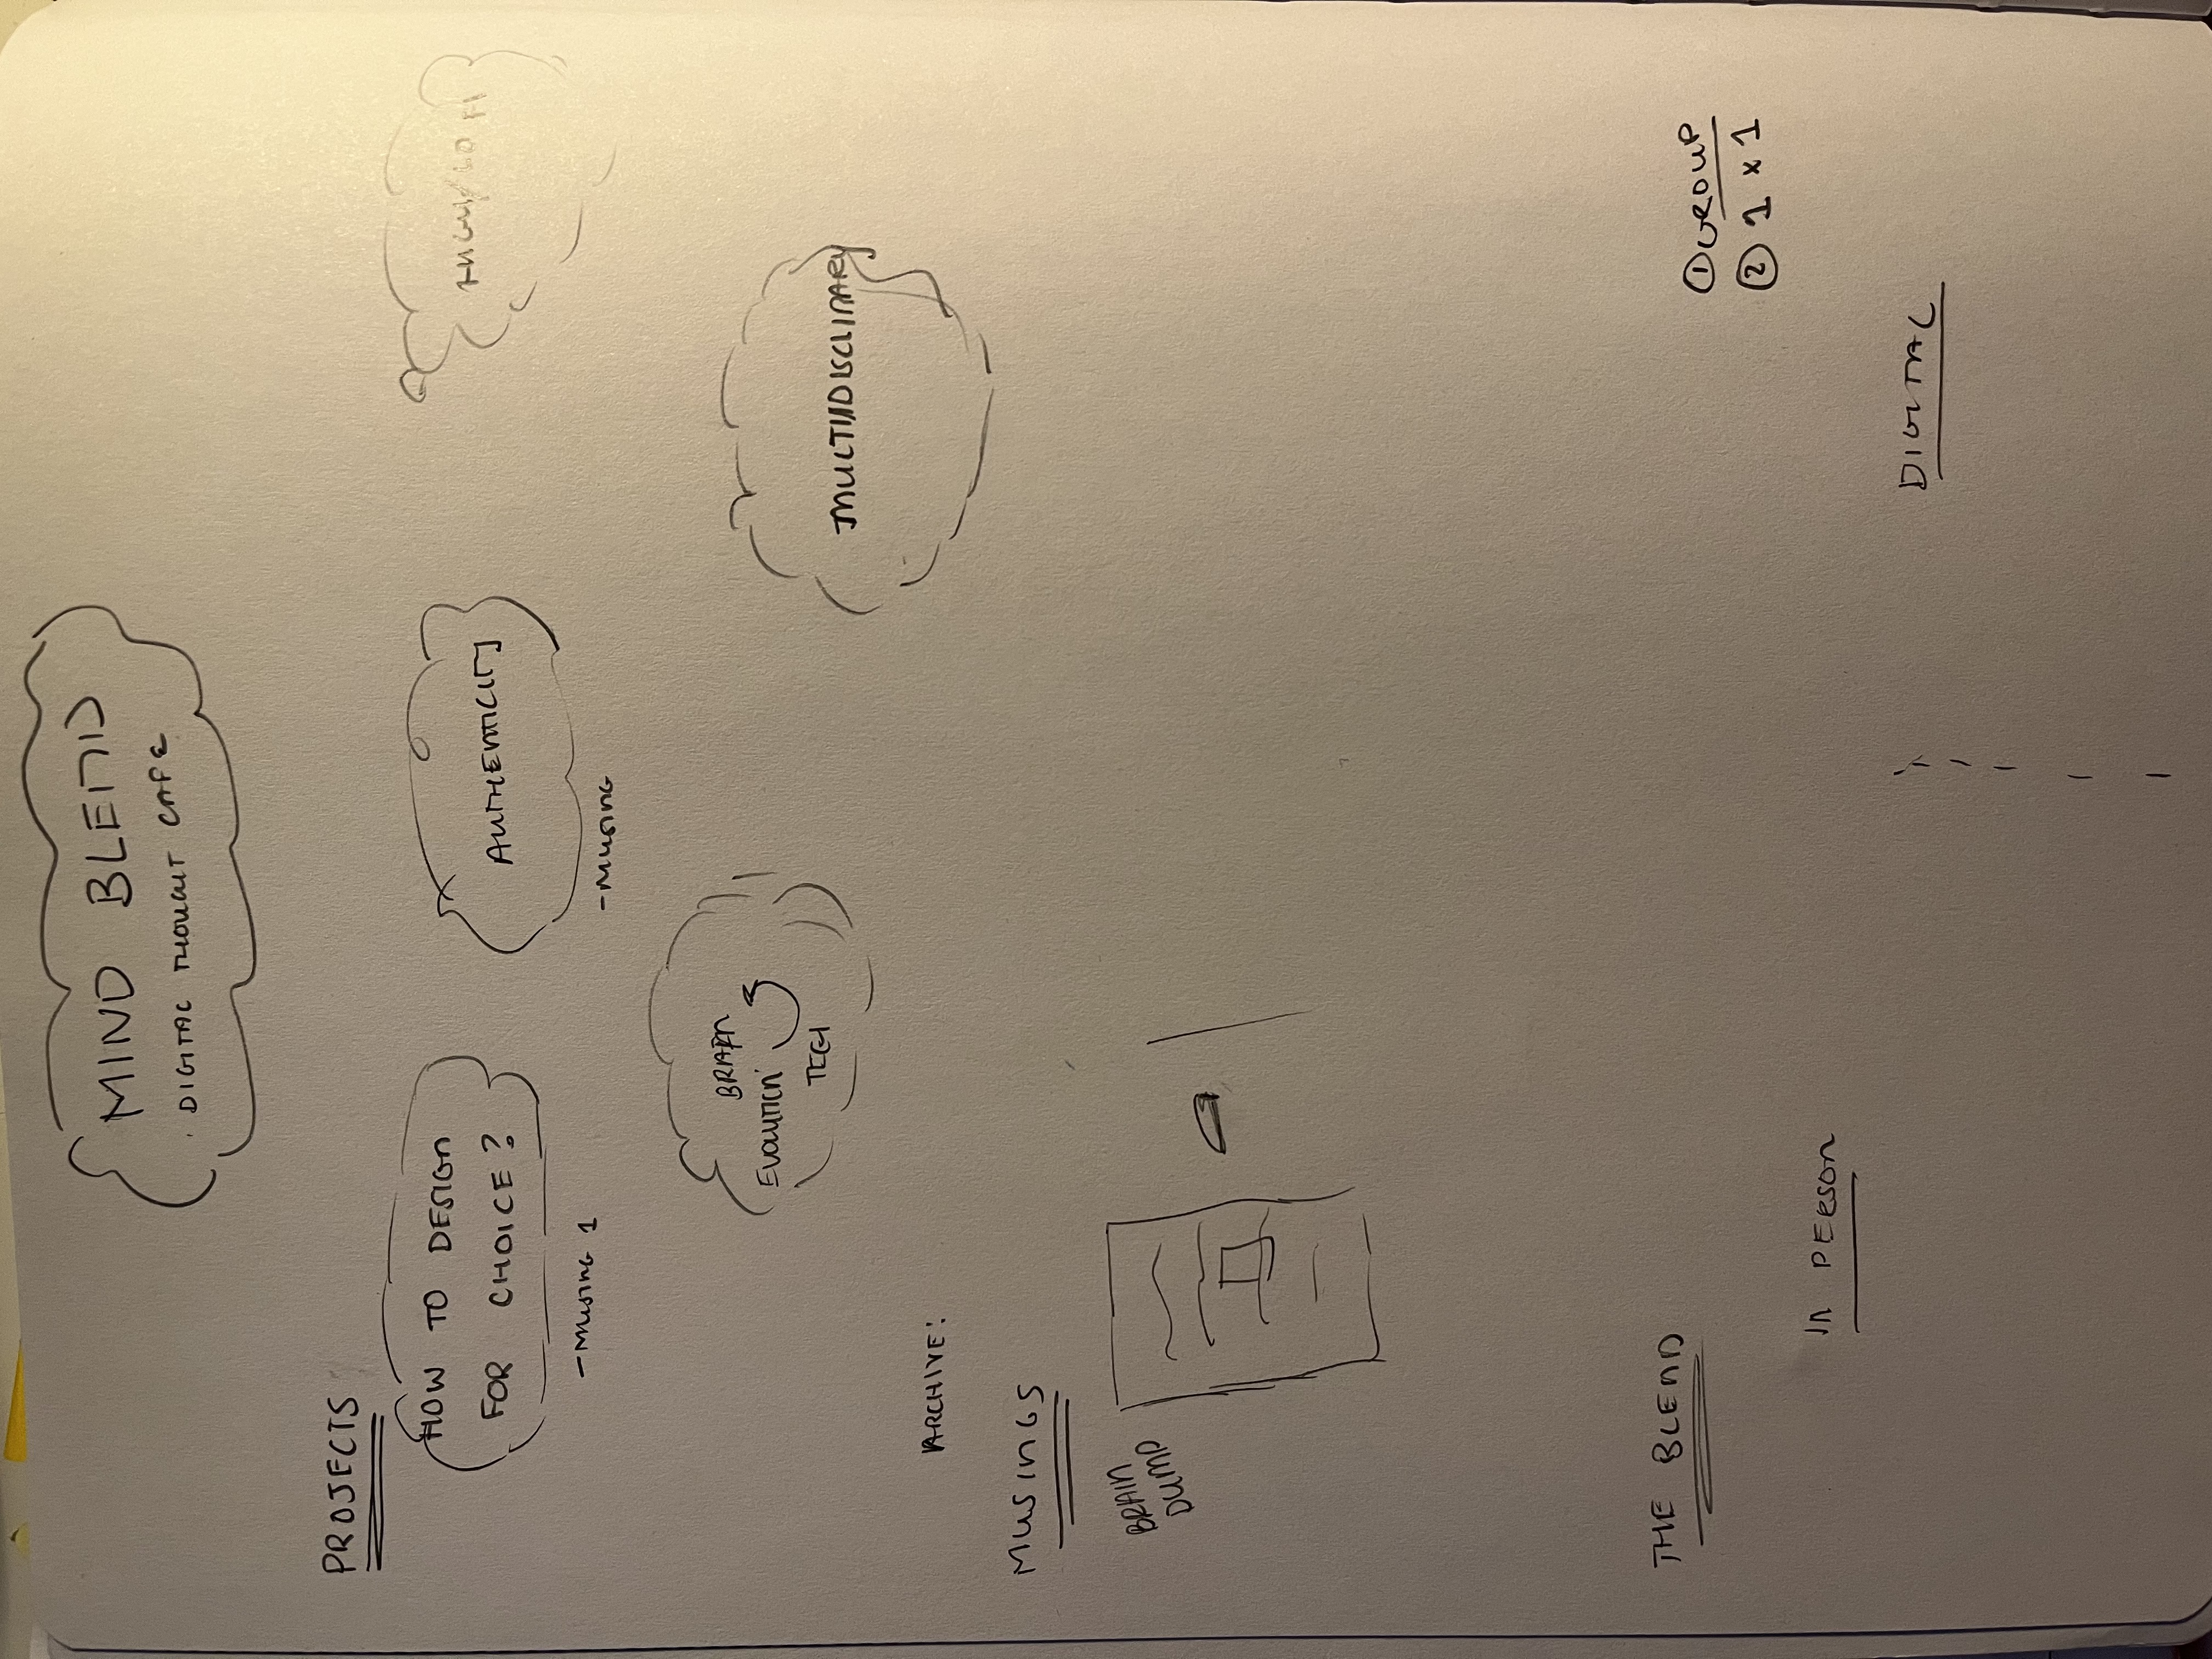 MIND BLEND
DIGITAL THOUGHT CAFE
PROJECTS
HOW TO DESIGN
FOR CHOICE?
-MUSING 1
AUTHENTICITY
-MUSING
HIGH/LO FI
BRAIN
EVOLUTION
TECH
MULTIIDISCLINARY
ARCHIVE:
MUSINGS
BRAIN
DUMP
THE BLEND
① GROUP
② 1 x 1
IN PERSON
DIGITAL